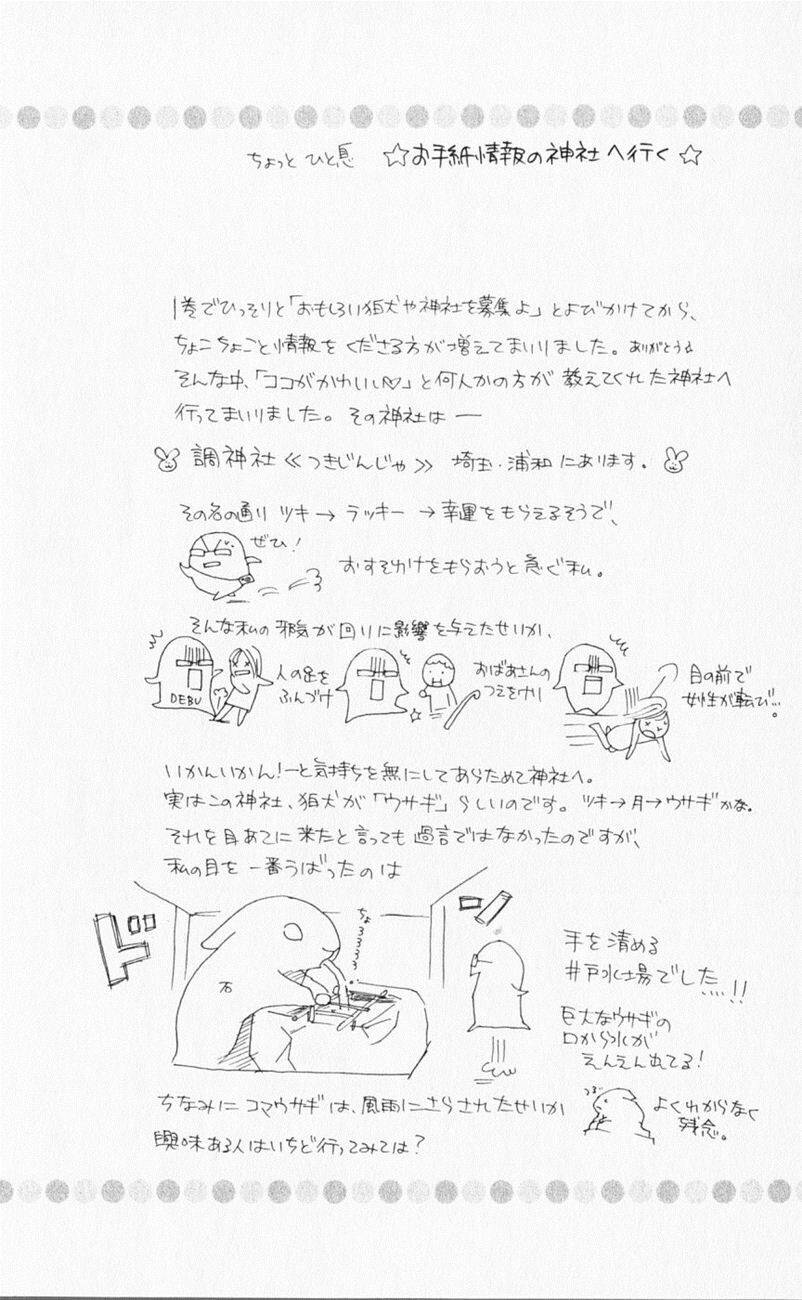 ちょっと ひと息 ☆お手紙情報の神社へ行く☆
1巻でひっそりと「おもしろい狛犬や神社を募集よ」とよびかけてから、
ちょこちょこと情報をくださる方が増えてまいりました。ありがとう
そんな中、「ココがかわいい♡」と何人かの方が教えてくれた神社へ
行ってまいりました。その神社は ―
調神社≪つきじんじゃ≫ 埼玉・浦和にあります。
その名の通り ツキ→ラッキー→幸運をもらえるそうで、
ぜひ!
おすそわけをもらおうと急ぐ私。
そんな私の邪気が回りに影響を与えたせいか、
DEBU
人の足を
ふんづけ
おばあさんの
つえをけり
目の前で
女性が転び…。
いかんいかん!―と気持ちを無にしてあらためて神社へ。
実はこの神社、狛犬が「ウサギ」らしいのです。ツキ→月→ウサギかな。
それを目あてに来たと言っても過言ではなかったのですが、
私の目を一番うばったのは
ドーン
ちょろろろろ
石
手を清める
井戸水場でした…!!
巨大なウサギの
口から水が
えんえん出てる!
ちなみにコマウサギは、風雨にさらされたせいか
よくわからなく
残念。
興味ある人はいちど行ってみては?